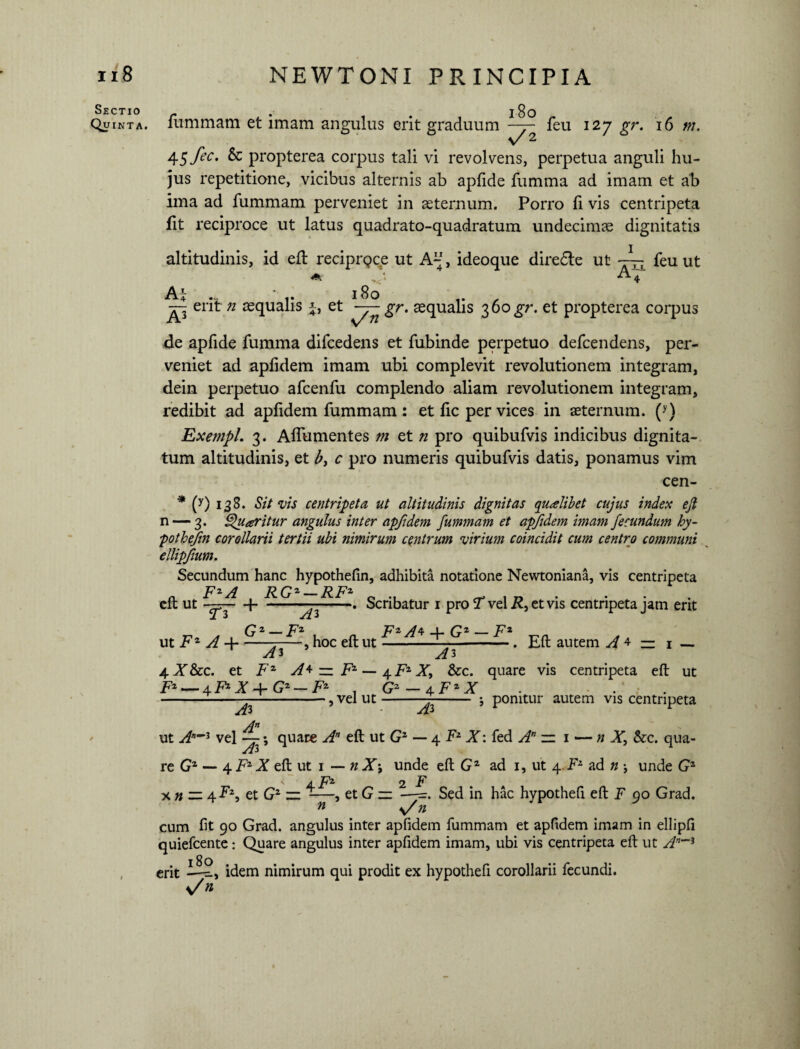 118 NEWTONI PRINCIPIA
Sectio
Quinta.
ſummam et imam angulus erit graduum 180/√2 ſeu 127 gr. 16 m.
45 ſec. & propterea corpus tali vi revolvens, perpetua anguli hu-
jus repetitione, vicibus alternis ab apſide ſumma ad imam et ab
ima ad ſummam perveniet in æternum. Porro ſi vis centripeta
ſit reciproce ut latus quadrato-quadratum undecimæ dignitatis
altitudinis, id eſt reciproce ut A^(11/4), ideoque directe ut 1/A^(11/4) ſeu ut
A^(1/4)/A³ erit n æqualis ¼, et 180/√n gr. æqualis 360 gr. et propterea corpus
de apſide ſumma diſcedens et ſubinde perpetuo deſcendens, per-
veniet ad apſidem imam ubi complevit revolutionem integram,
dein perpetuo aſcenſu complendo aliam revolutionem integram,
redibit ad apſidem ſummam : et ſic per vices in æternum. (y)
Exempl. 3. Aſſumentes m et n pro quibuſvis indicibus dignita-
tum altitudinis, et b, c pro numeris quibuſvis datis, ponamus vim
cen-
* (y) 138. Sit vis centripeta ut altitudinis dignitas quælibet cujus index eſt
n — 3. Quæritur angulus inter apſidem ſummam et apſidem imam ſecundum hy-
potheſin corollarii tertii ubi nimirum centrum virium coincidit cum centro communi
ellipſium.
Secundum hanc hypotheſin, adhibitâ notatione Newtonianâ, vis centripeta
eſt ut F²A/T³ + (RG² — RF²)/A³. Scribatur 1 pro T vel R, et vis centripeta jam erit
ut F² A + (G² — F²)/A³, hoc eſt ut (F² A⁴ + G² — F²)/A³. Eſt autem A⁴ = 1 —
4 X &c. et F² A⁴ = F² — 4 F² X, &c. quare vis centripeta eſt ut
(F² — 4 F² X + G² — F²)/A³, vel ut (G² — 4 F² X)/A³ ; ponitur autem vis centripeta
ut Aⁿ⁻³ vel Aⁿ/A³ ; quare Aⁿ eſt ut G² — 4 F² X : ſed Aⁿ = 1 — n X, &c. qua-
re G² — 4 F² X eſt ut 1 — n X ; unde eſt G² ad 1, ut 4 F² ad n ; unde G²
× n = 4 F², et G² = 4F²/n, et G = 2F/√n. Sed in hâc hypotheſi eſt F 90 Grad.
cum ſit 90 Grad. angulus inter apſidem ſummam et apſidem imam in ellipſi
quieſcente : Quare angulus inter apſidem imam, ubi vis centripeta eſt ut Aⁿ⁻³
erit 180/√n, idem nimirum qui prodit ex hypotheſi corollarii ſecundi.